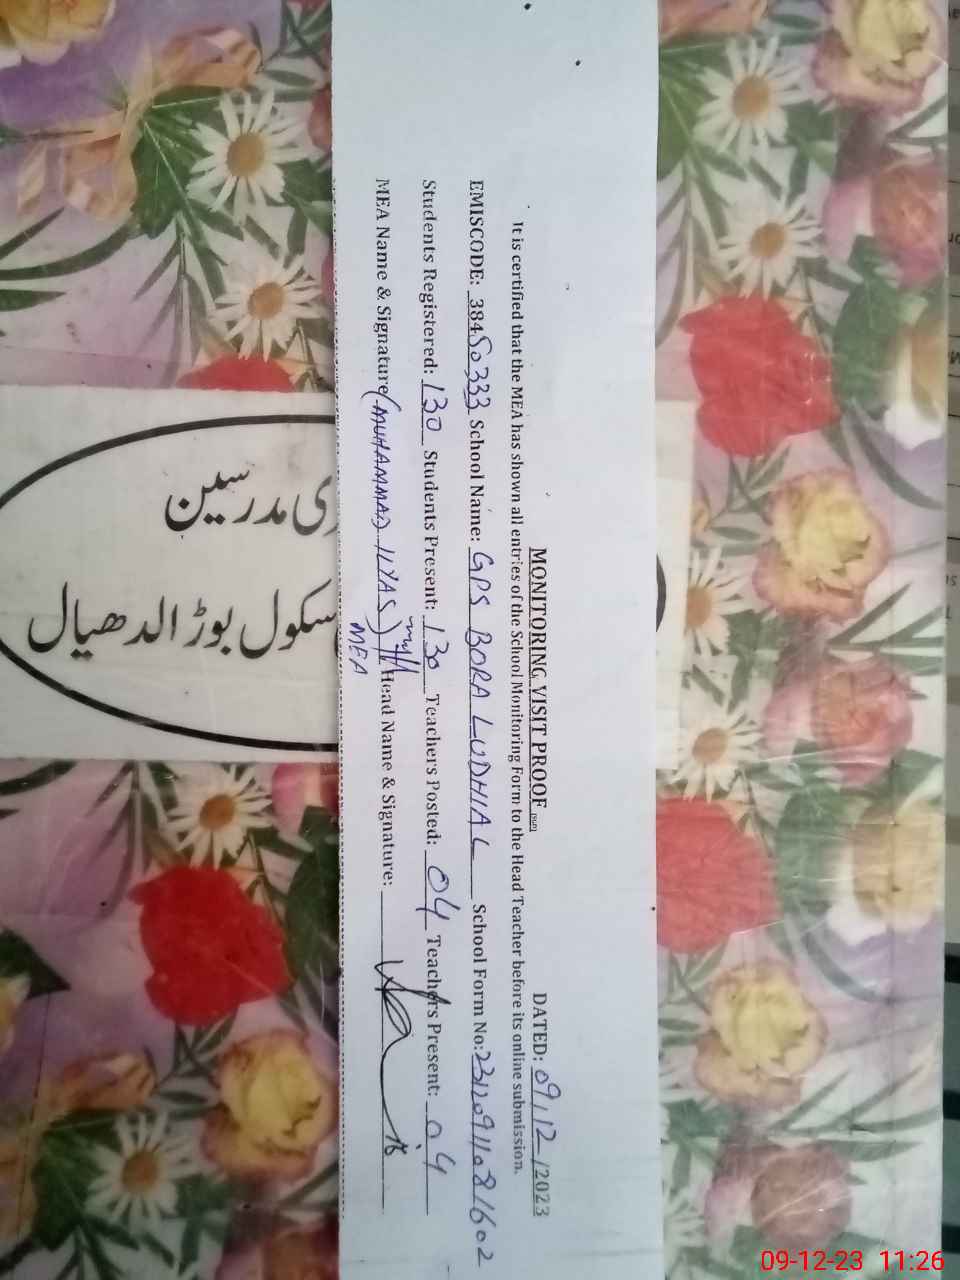 MONITORING VISIT PROOF DATED: 09/12/2023
It is certified that the MEA has shown all entries of the School Monitoring Form to the Head Teacher before its online submission.
EMISCODE: 38450333 School Name: GPS BORA LUDHIAL School Form No: 23120911081602
Students Registered: 130 Students Present: 130 Teachers Posted: 04 Teachers Present: 04
MEA Name & Signature (MUHAMMAD ILYAS) Head Name & Signature:
MEA
ی مدرسین
سکول بوڑالدھیال
09-12-23 11:26